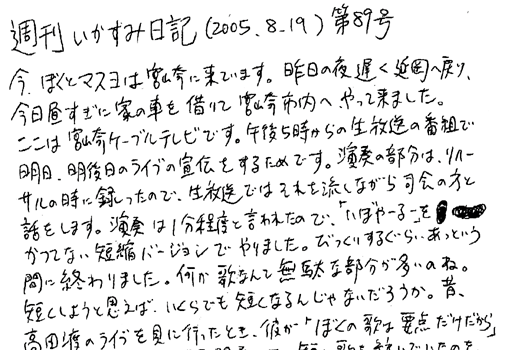 週刊いかすみ日記(2005.8.19)第89号
今、ぼくとマスヨは宮崎に来ています。昨日の夜遅く延岡へ戻り、
今日昼すぎに家の車を借りて宮崎市内へやって来ました。
ここは宮崎ケーブルテレビです。午後5時からの生放送の番組で
明日、明後日のライブの宣伝をするためです。演奏の部分は、リハー
サルの時に録ったので、生放送ではそれを流しながら司会の方と
話をします。演奏は1分程度と言われたので、「いばやーる」を
かつてない短縮バージョンでやりました。びっくりするぐらい、あっという
間に終わりました。何か歌なんて無駄な部分が多いのね。
短くしようと思えば、いくらでも短くなるんじゃないだろうか。昔、
高田渡のライブを見に行ったとき、彼が「ぼくの歌は要点だけだから」